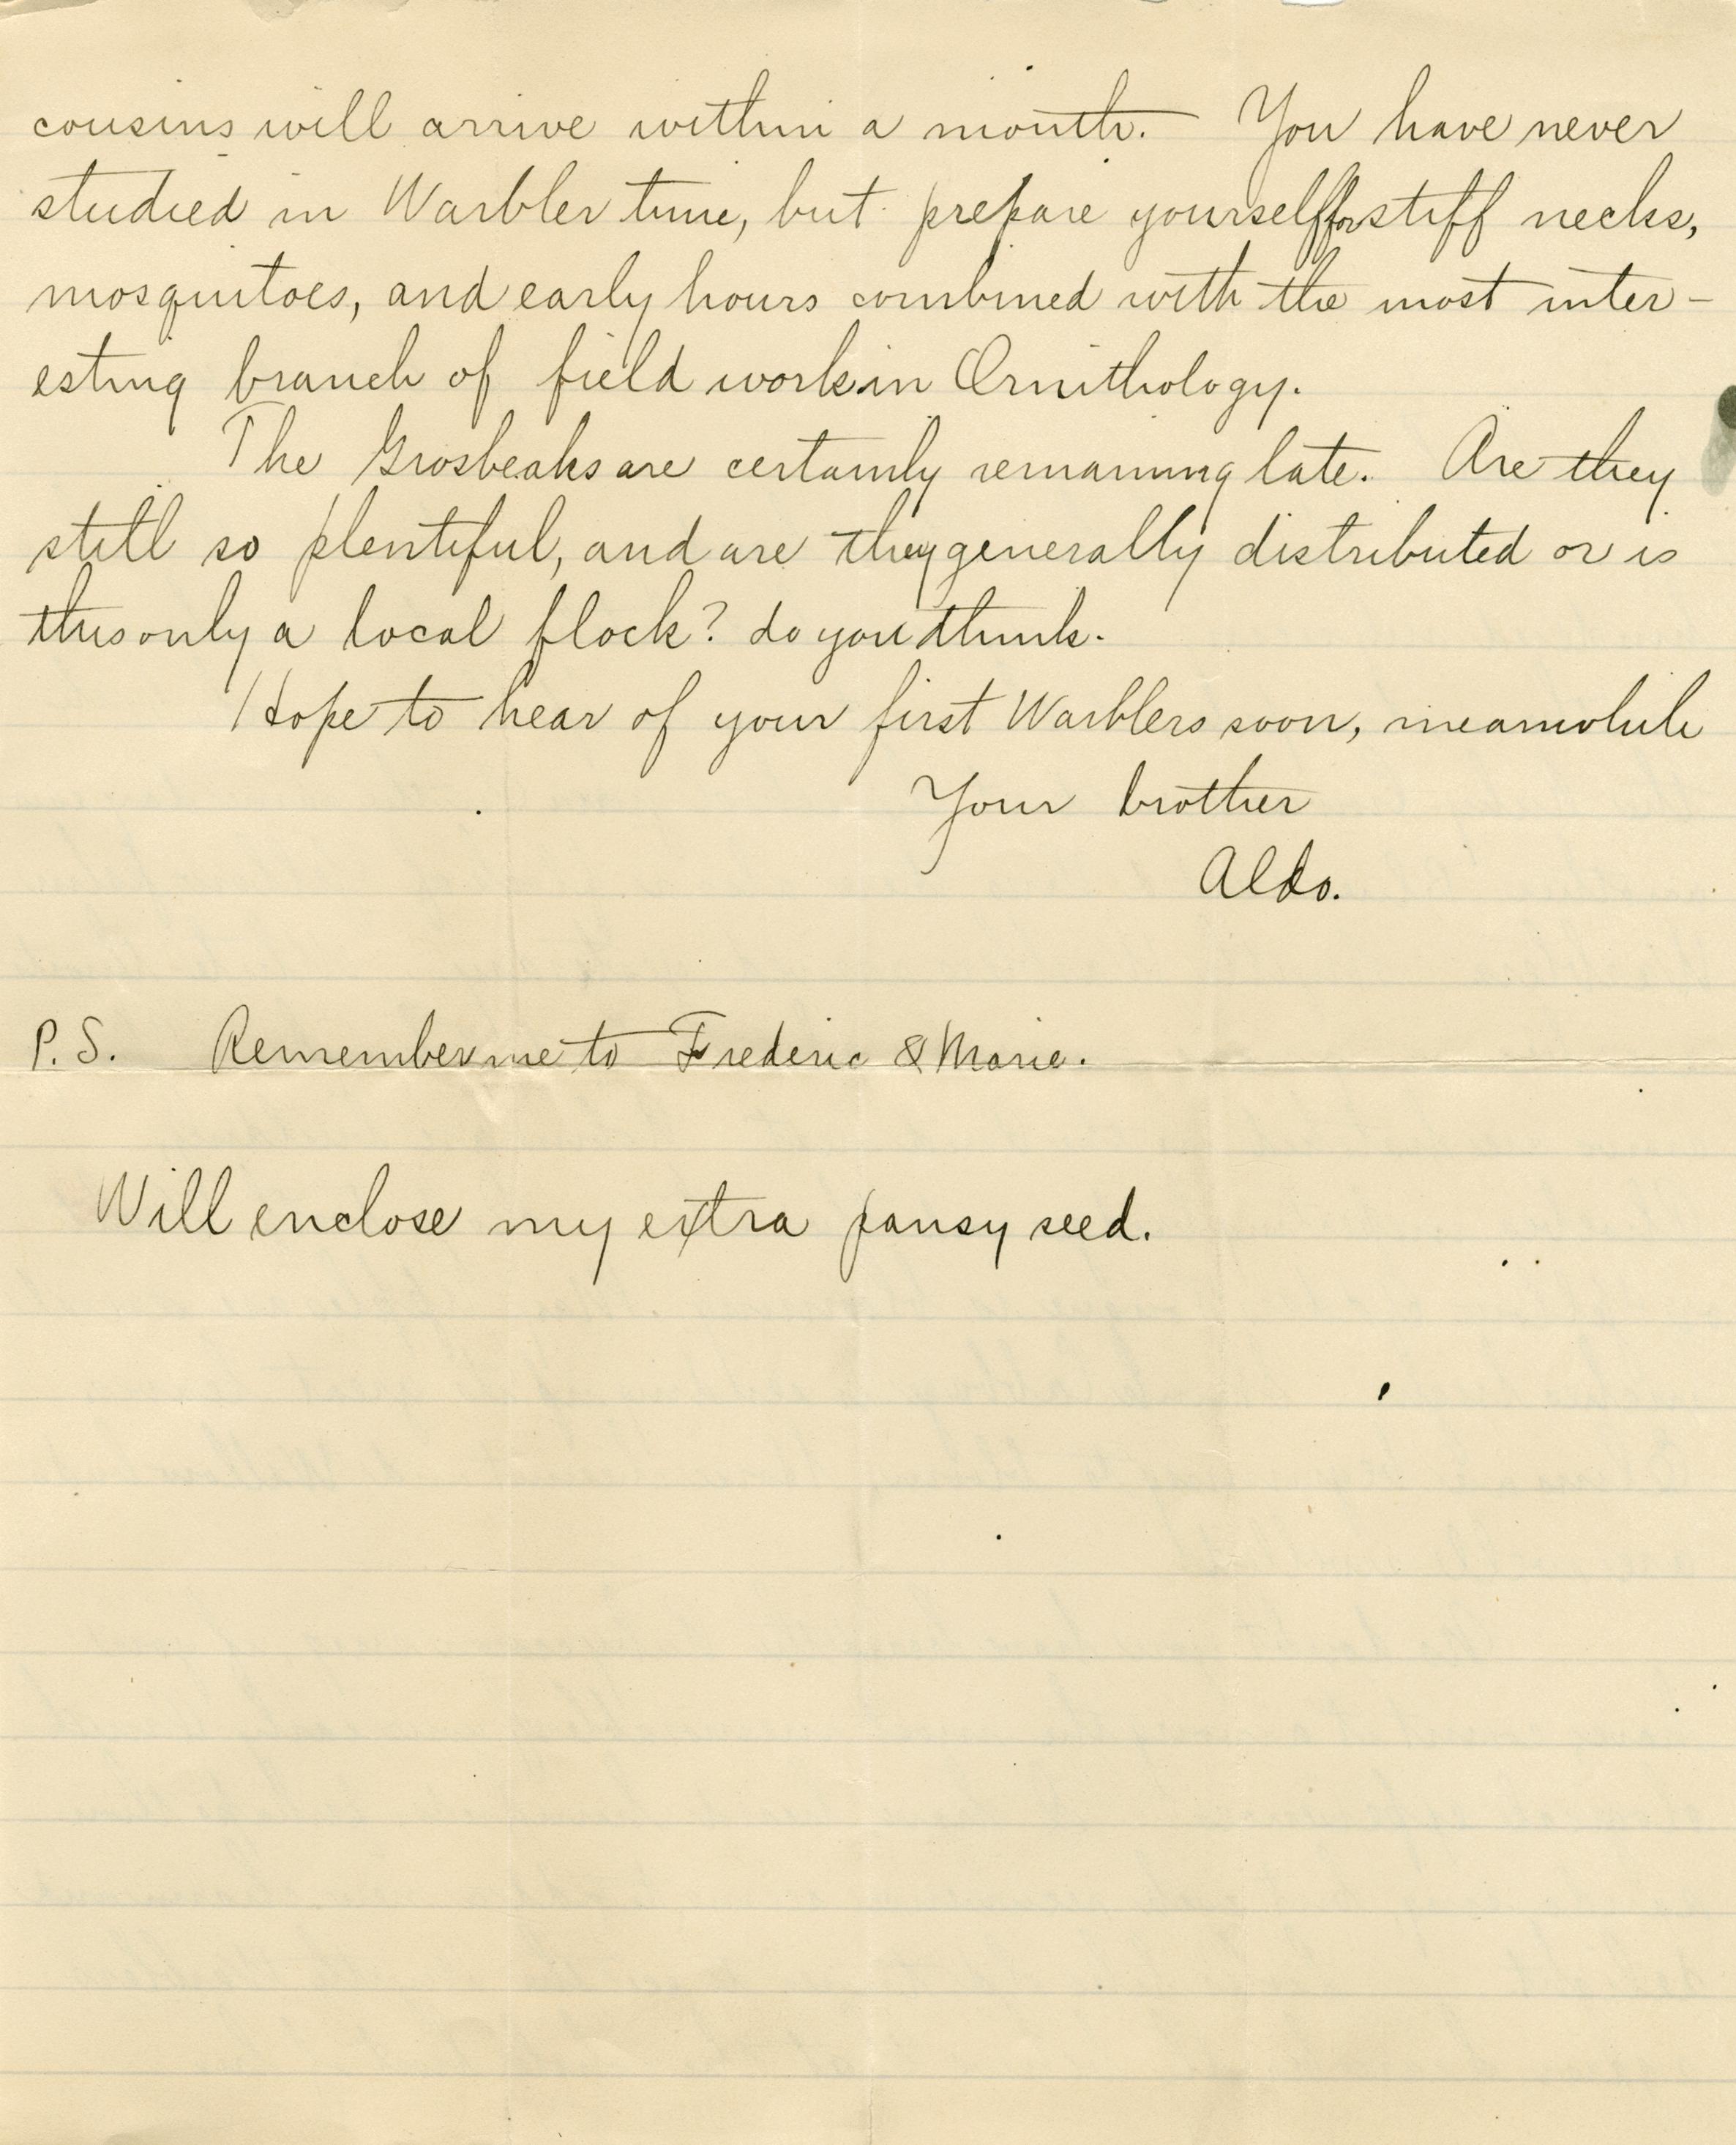 cousins will arrive within a month. You have never
studied in Warbler time, but prepare yourself for stiff necks,
mosquitoes, and early hours combined with the most inter-
esting branch of field work in Ornithology.
The Grosbeaks are certainly remaining late. Are they
still so plentiful, and are they generally distributed or is
this only a local flock? do you think.
Hope to hear of your first Warblers soon, meanwhile
Your brother
Aldo.
P.S. Remember me to Frederic & Marie.
Will enclose my extra pansy seed.